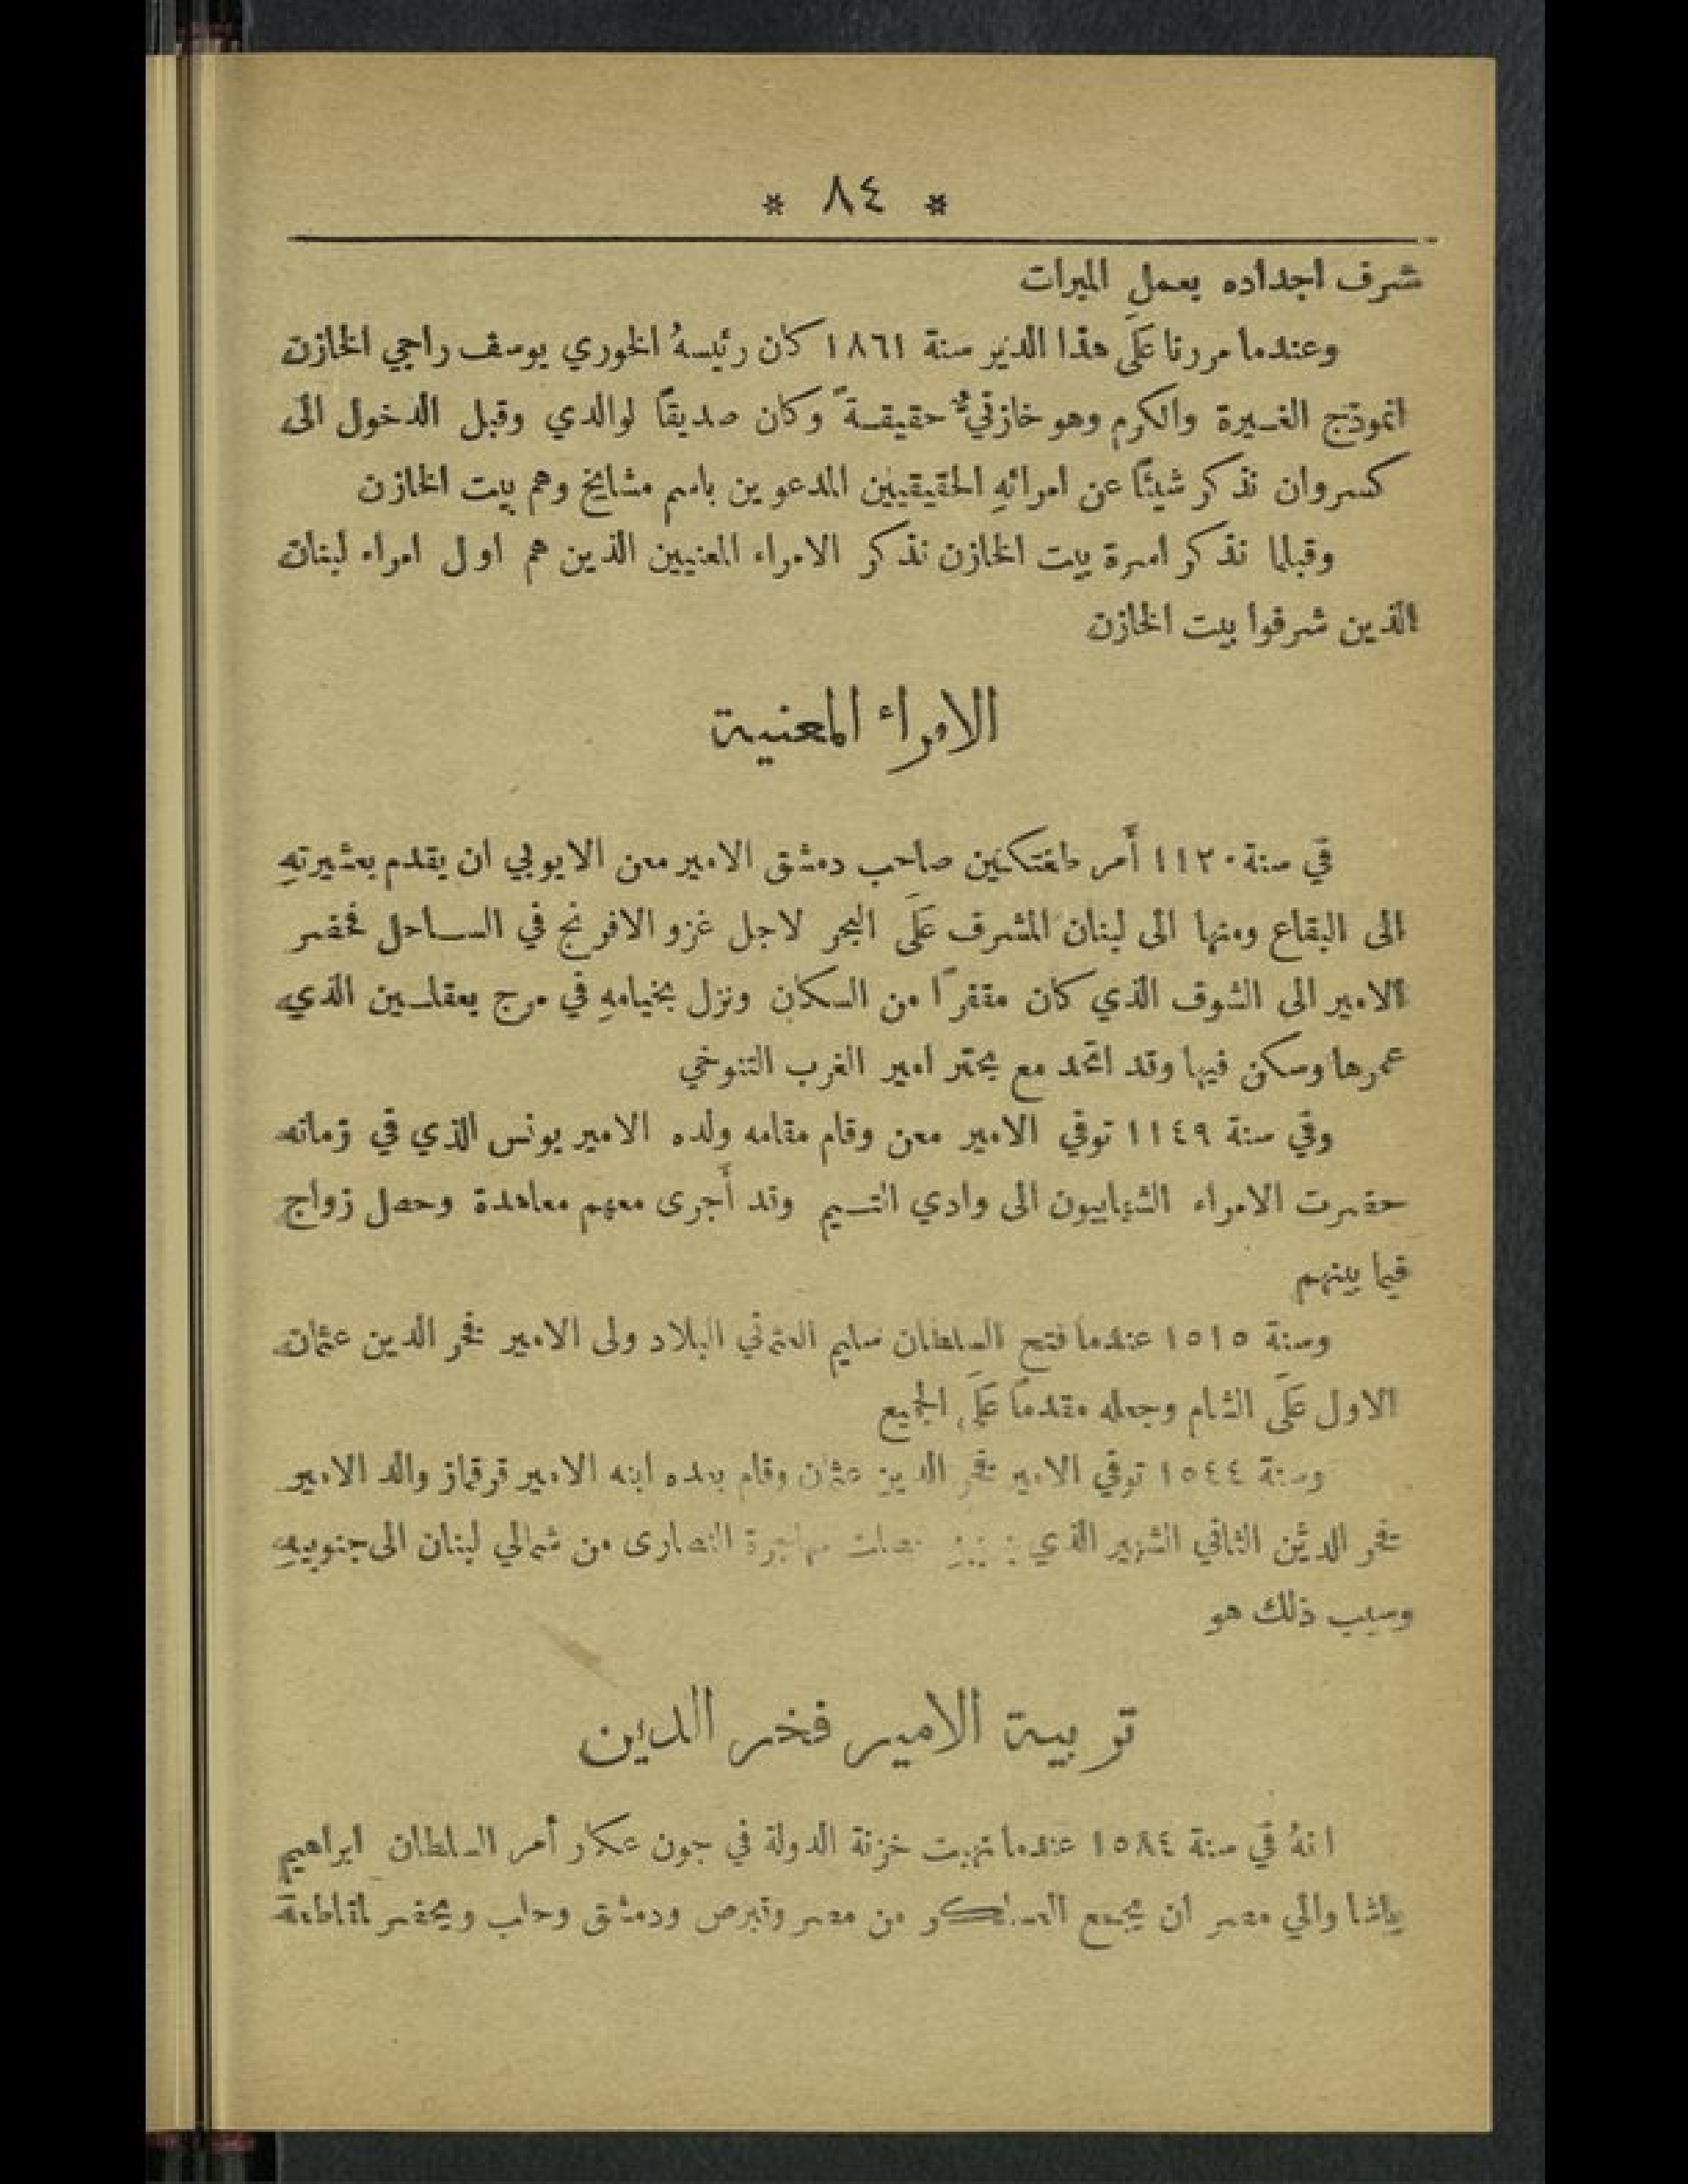 * ٨٤ *
شرف اجداده يعمل المبرات
وعندما مررنا عَلَى هذا الدير سنة ١٨٦١ كان رئيسهُ الخوري يوسف راجي الخازن
انموذج الغيرة والكرم وهو خازنيٌّ حقيقةً وكان صديقًا لوالدي وقبل الدخول الى
كسروان نذكر شيئًا عن امرائهِ الحقيقيين المدعوين باسم مشايخ وهم بيت الخازن
وقبلما نذكر اسرة بيت الخازن نذكر الامراء المعنيين الذين هم اول امراء لبنان
الذين شرفوا بيت الخازن
الامراء المعنية
في سنة ١١٢٠ أمر طغتكين صاحب دمشق الامير معن الايوبي ان يقدم بعشيرتهِ
الى البقاع ومنها الى لبنان المشرف عَلَى البحر لاجل غزو الافرنج في الساحل فحضر
الامير الى الشوف الذي كان مقفرًا من السكان ونزل بخيامهِ في مرج بعقلين الذي
عمرها وسكن فيها وقد اتحد مع بحتر امير الغرب التنوخي
وفي سنة ١١٤٩ توفي الامير معن وقام مقامه ولده الامير يونس الذي في زمانه
حضرت الامراء الشهابيون الى وادي التيم وقد أجرى معهم معاهدة وحصل زواج
فيما بينهم
وسنة ١٥١٥ عندما فتح السلطان سليم العثماني البلاد ولى الامير فخر الدين عثمان
الاول عَلَى الشام وجعله مقدمًا عَلَى الجميع
وسنة ١٥٤٤ توفي الامير فخر الدين عثمان وقام بعده ابنه الامير قرقماز والد الامير
فخر الدين الثاني الشهير الذي حصلت مهاجرة النصارى من شمالي لبنان الى جنوبيهِ
وسبب ذلك هو
تربية الامير فخر الدين
انهُ في سنة ١٥٨٤ عندما نهبت خزنة الدولة في جون عكار أمر السلطان ابراهيم
باشا والي مصر ان يجمع العساكر من مصر وقبرص ودمشق وحلب ويحضر لمقاطعة